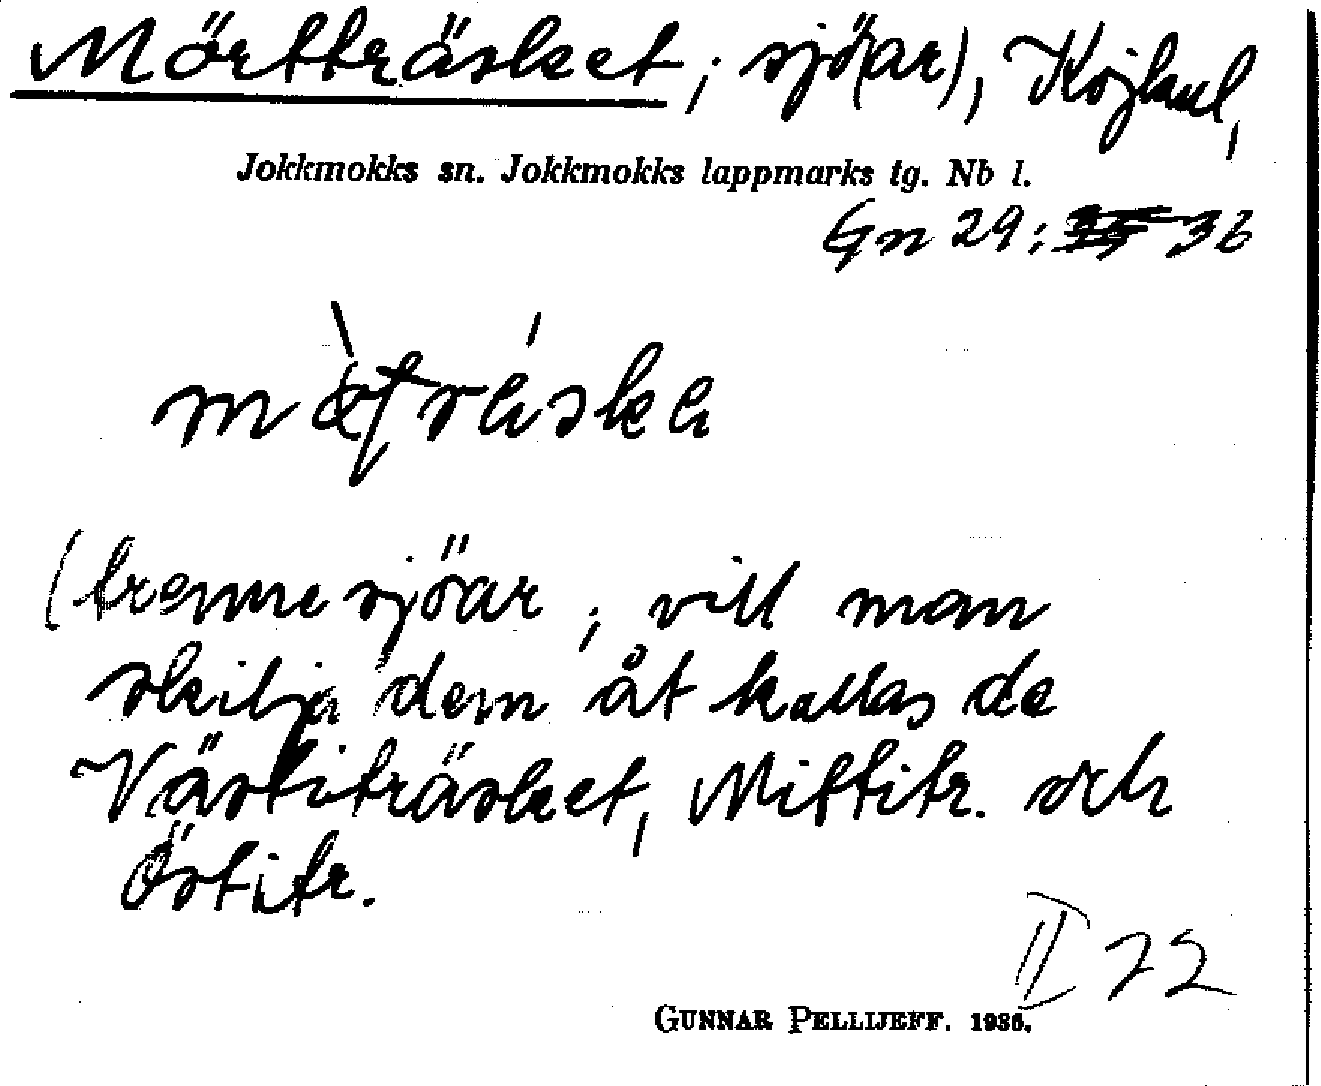 Mörtträsket, sjö(ar),
Jokkmokks sn. Jokkmokks lappmarks tg. Nb l.
Gn 29: 36
(trenne sjöar; vill man
skilja dem åt kallas de
Västiträsket, Mittitr. och
Östitr.
II 22
GUNNAR PELLIJEFF. 1936.